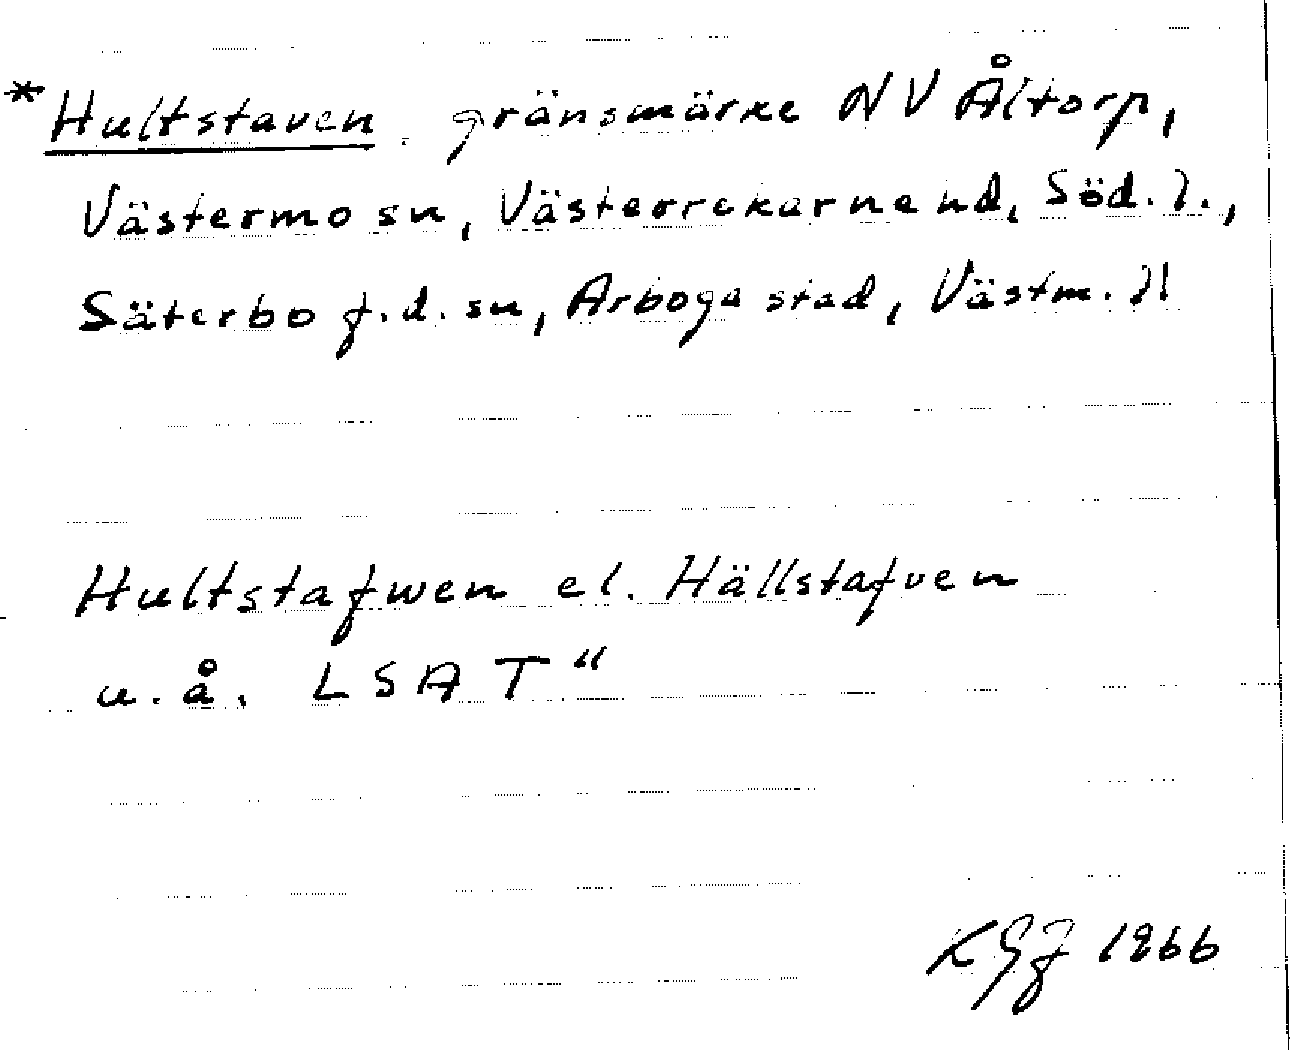 *Hultstaven, gränsmärke NV Åltorp,
Västermo sn, Västerrekarne hd, Söd. l.,
Säterbo f.d. sn, Arboga stad, Västm. l.
Hultstafwen el. Hällstafven
u. å. LSA T"
KGF 1966